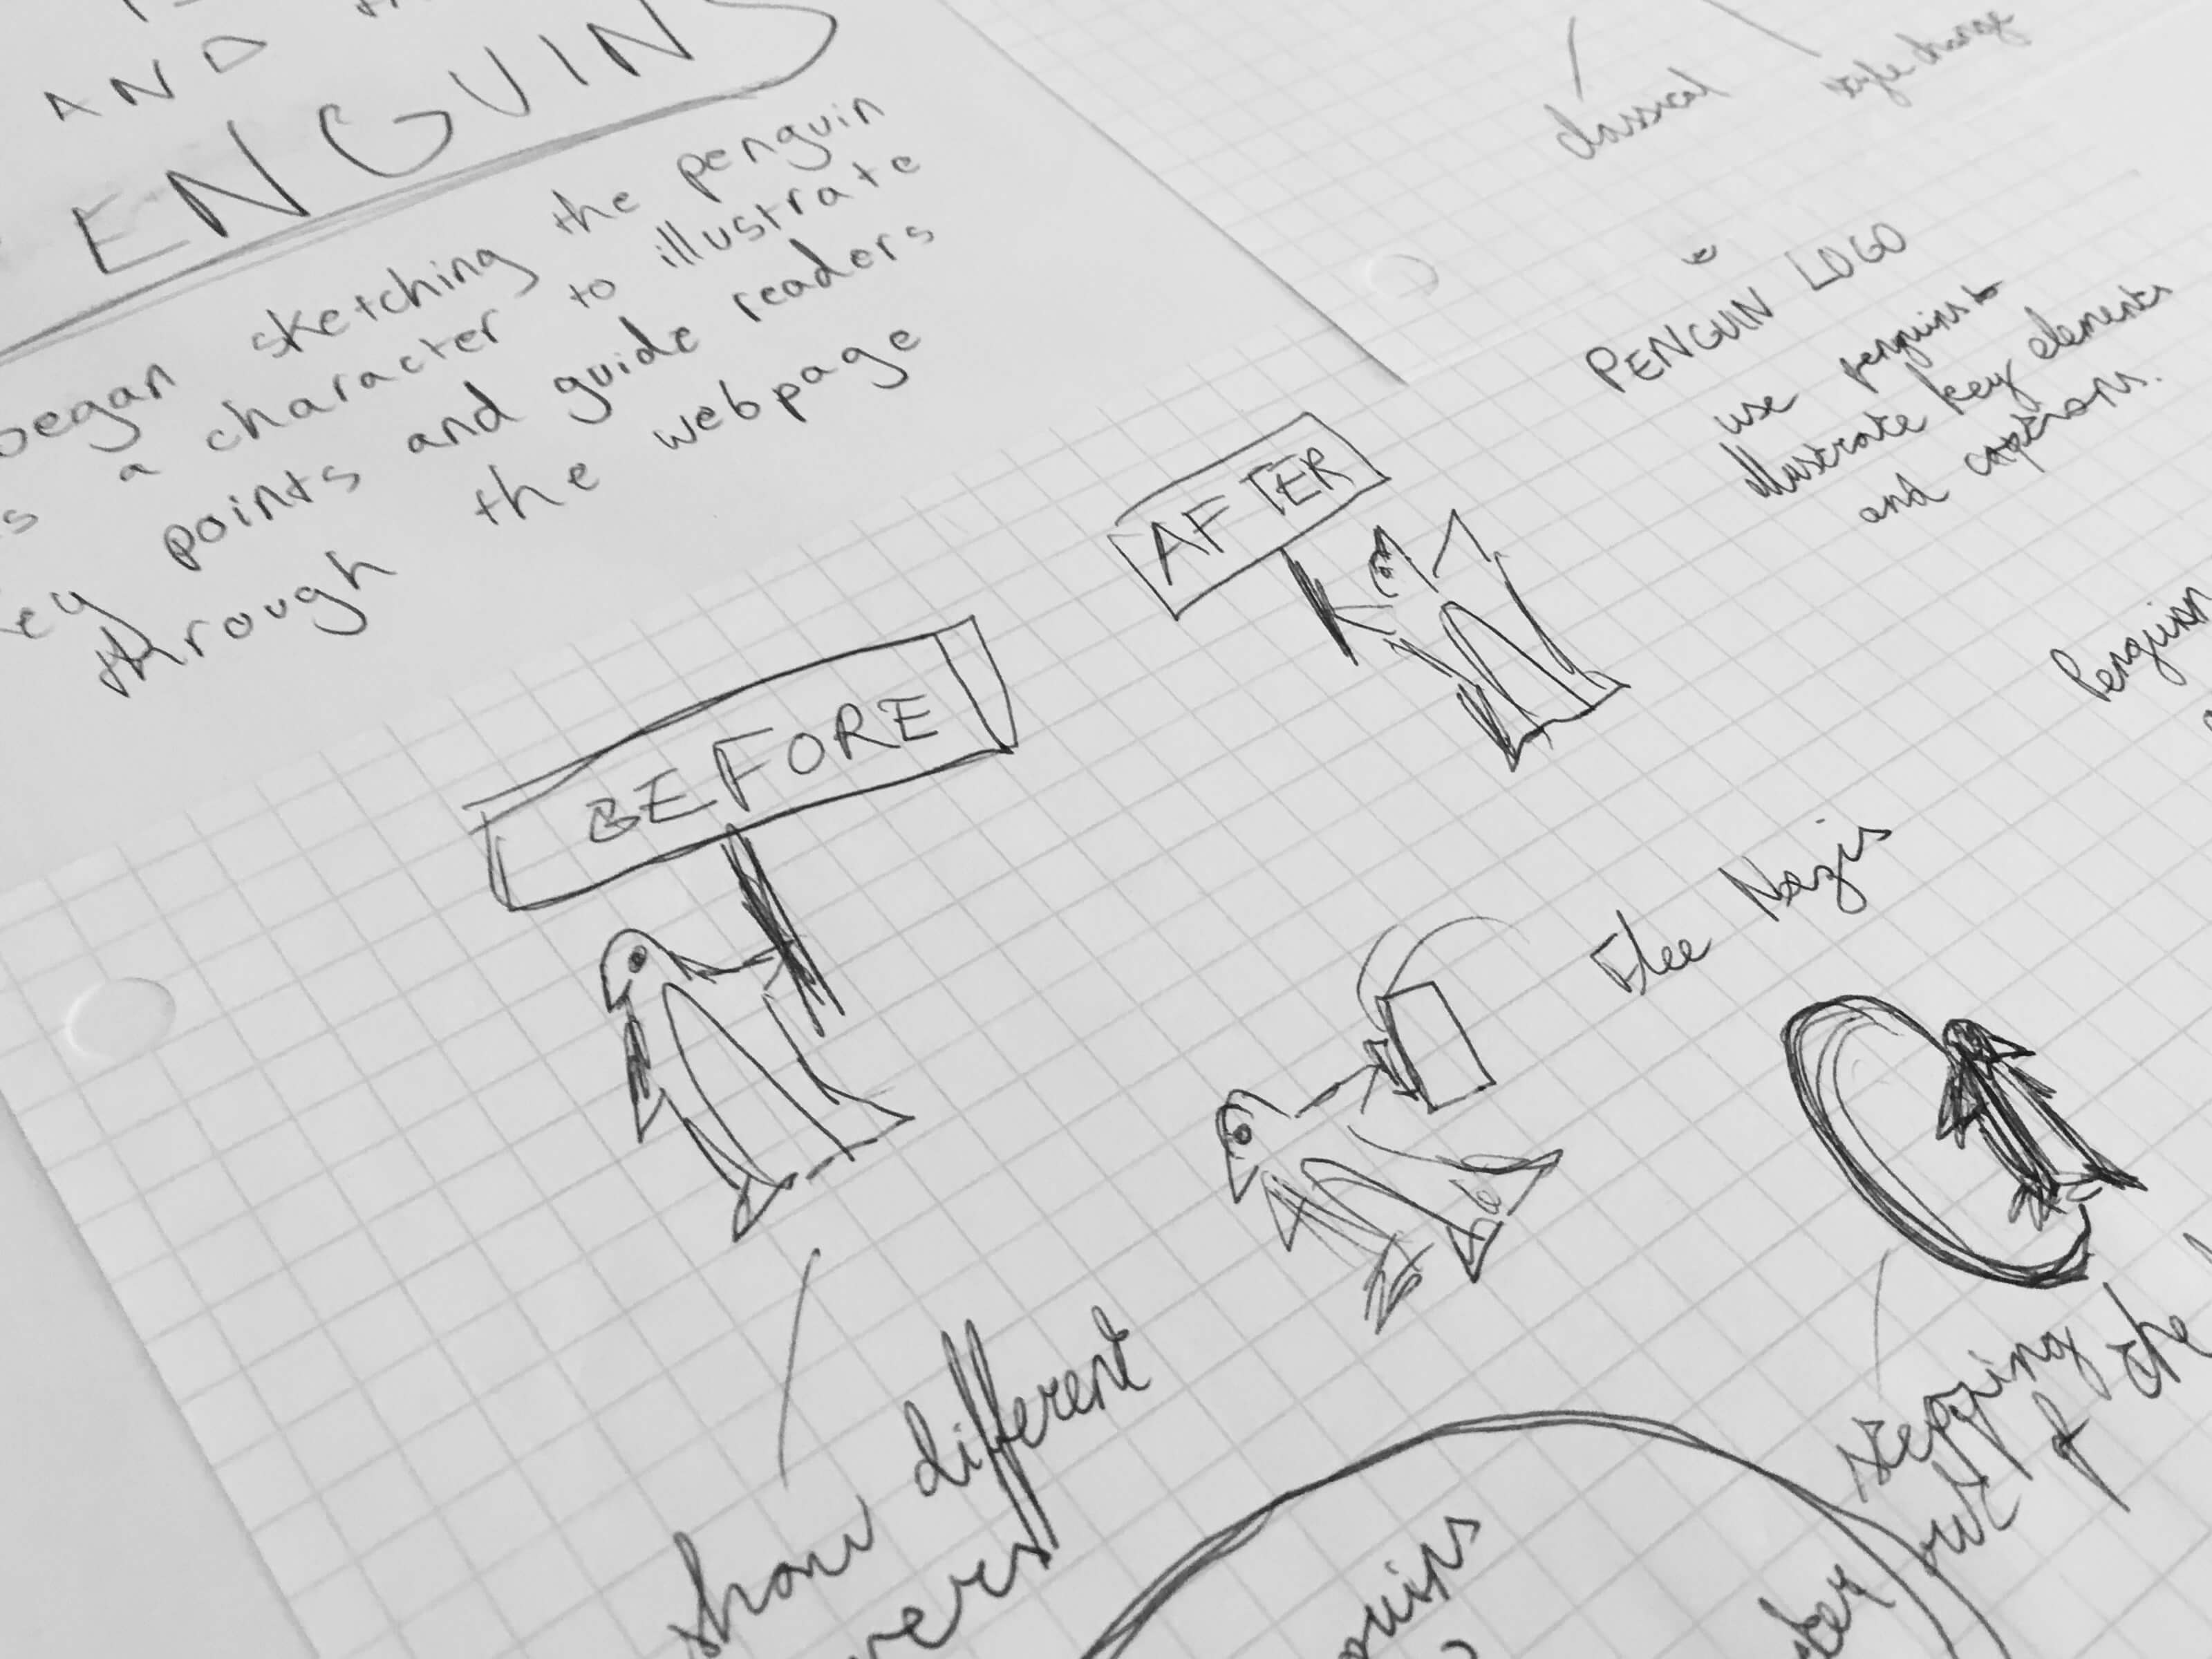 AND
ENGUINS
began sketching the penguin
s a character to illustrate
ey points and guide readers
through the webpage
classical
style change
PENGUIN LOGO
use penguins to
illustrate key elements
and captions.
AFTER
BEFORE
Penguin
Flee Nazis
stepping
out of the
show different
uins